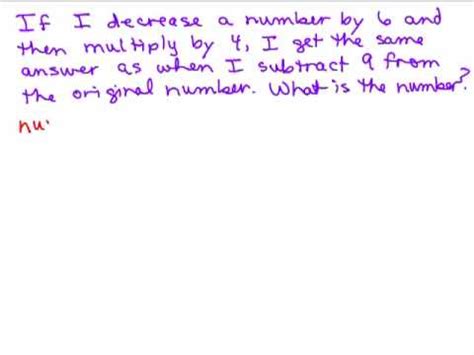 If I decrease a number by 6 and
then multiply by 4, I get the same
answer as when I subtract 9 from
the original number. What is the number?
nu